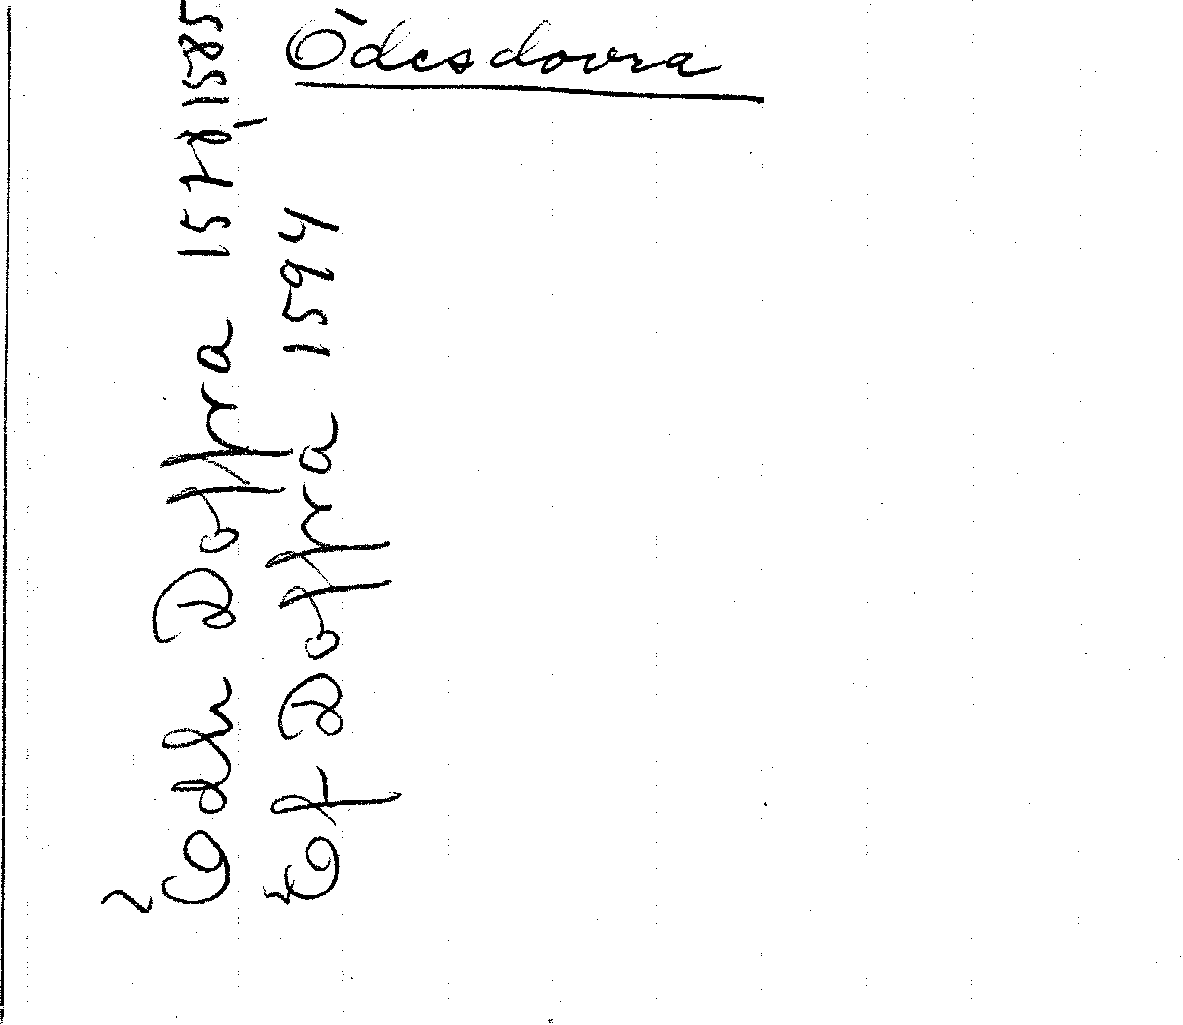 Ódesdovra
Odh Doffra 1571 1585
Ef Doffra 1594